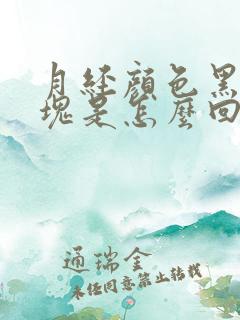 月經顏色黑
塊是怎麼回
通瑞金
未经同意禁止转载